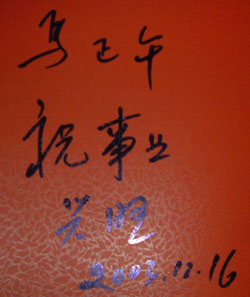 马正午
祝事业
兴旺
2003.12.16